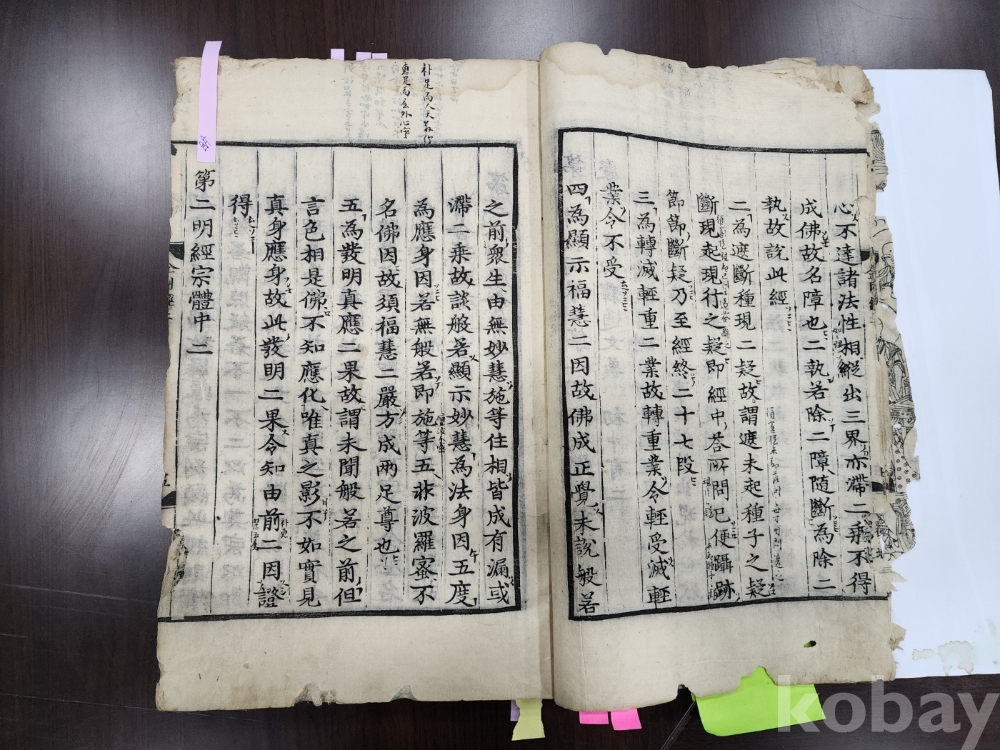 心不達諸法性相縱出三界亦滯二乘不得
成佛故名障也二執若除二障隨斷為除二
執故說此經
二為遮斷種現二疑故謂遮未起種子之疑
斷現起現行之疑即經中荅所問已便躡跡
節節斷疑乃至經終二十七段
三為轉滅輕重二業故轉重業令輕受滅輕
業令不受
四為顯示福慧二因故佛成正覺未說般若
之前衆生由無妙慧施等住相皆成有漏或
滯二乘故談般若顯示妙慧為法身因五度
為應身因若無般若即施等五非波羅蜜不
名佛因故須福慧二嚴方成兩足尊也
五為發明真應二果故謂未聞般若之前但
言色相是佛不知應化唯真之影不如實見
真身應身故此發明二果令知由前二因證
得
第二明經宗體中二
kobay